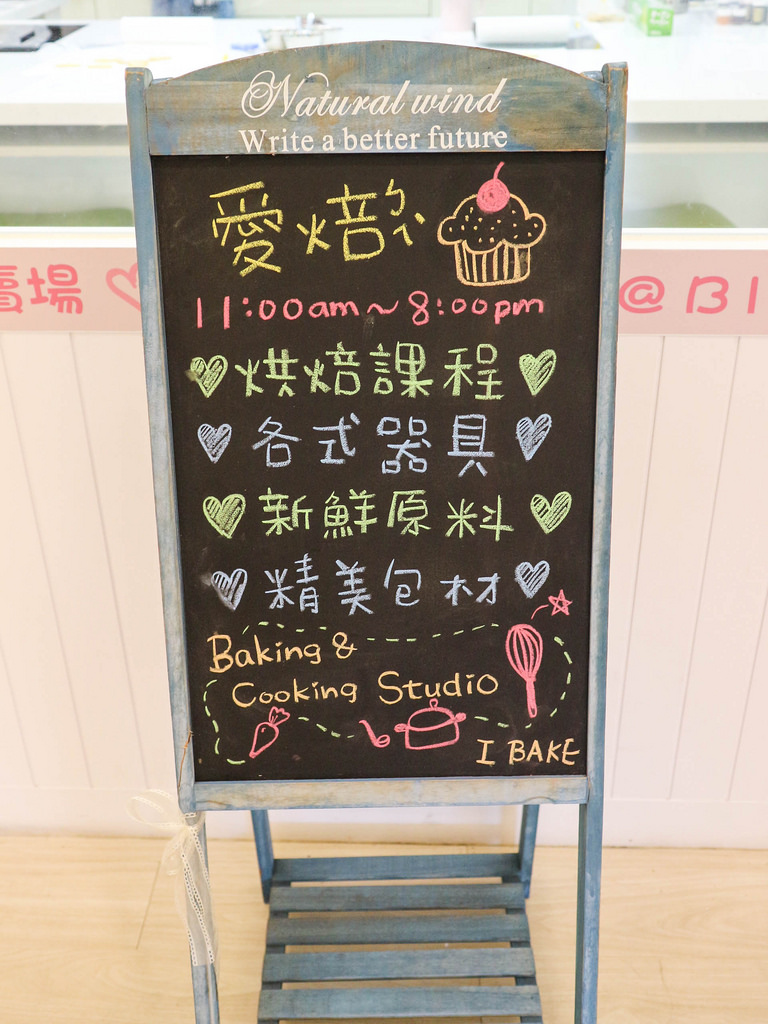 Natural wind
Write a better future
愛焙尒
11:00am~8:00pm
烘焙課程
各式器具
新鮮原料
精美包材
Baking &
Cooking Studio
I BAKE
賣場
@B1